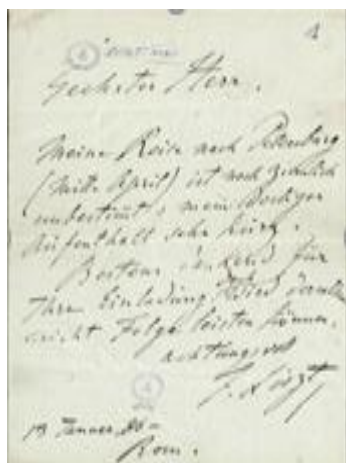 1
Geehrter Herr,
Meine Reise nach Petersburg
(Mitte April) ist noch ziemlich
unbestimt, mein dortiger
Aufenthalt sehr kurz.
Bestens dankend für
Ihre Einladung,
nicht Folge leisten können,
achtungsvoll
F. Liszt
13 Januar, 86 –
Rom.